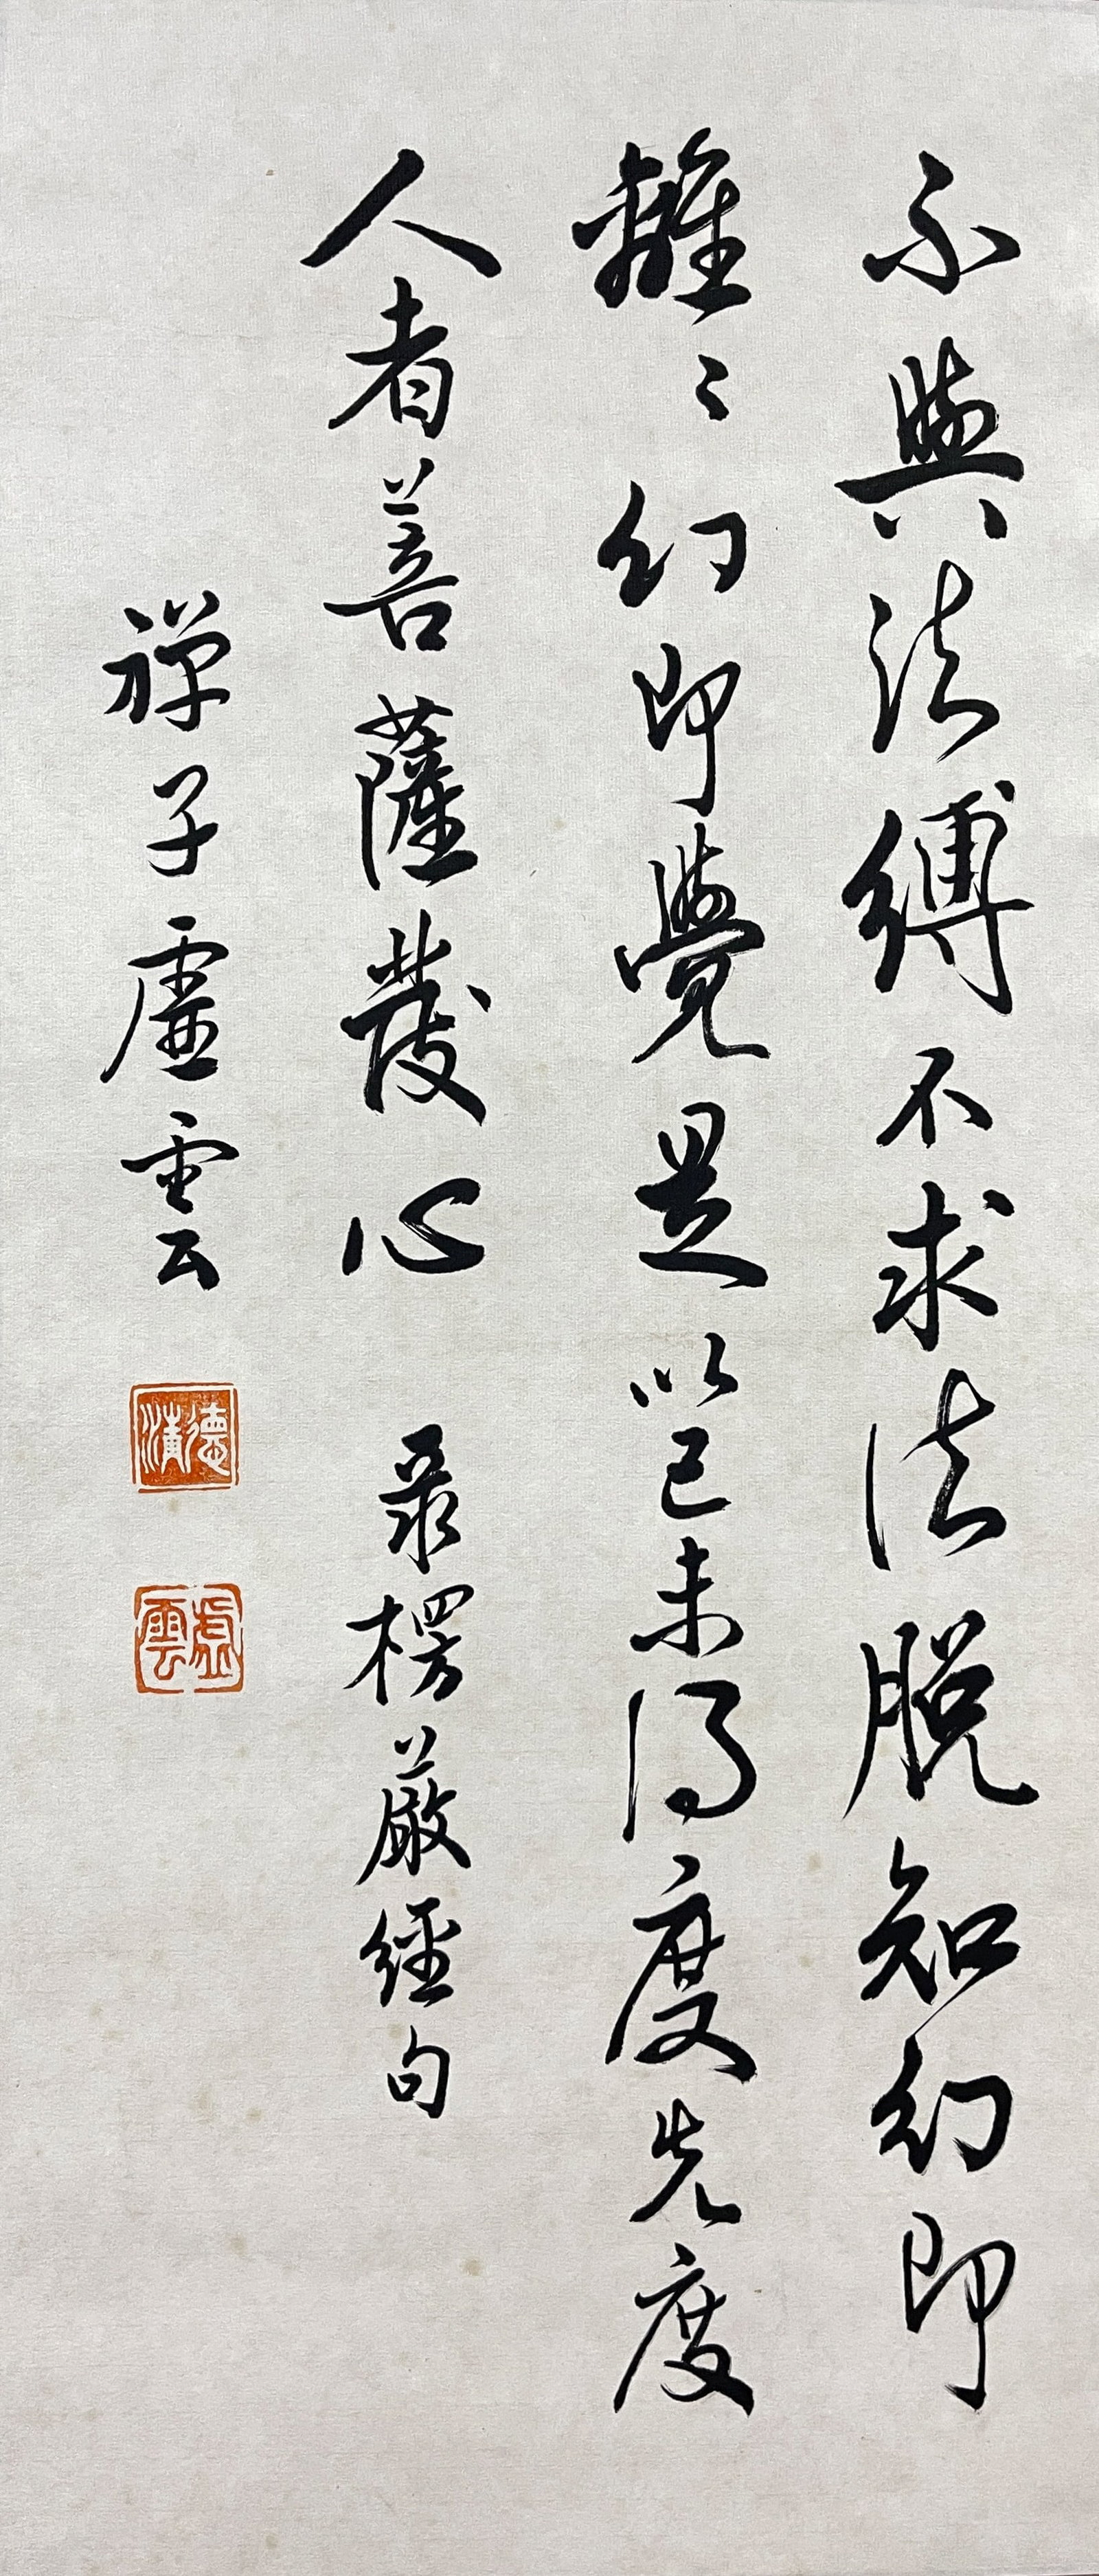 不與法縛不求法脫知幻即
離〻幻即覺是以已未得度先度
人者菩薩發心 录楞嚴經句
禅子虛雲
德清
虛雲